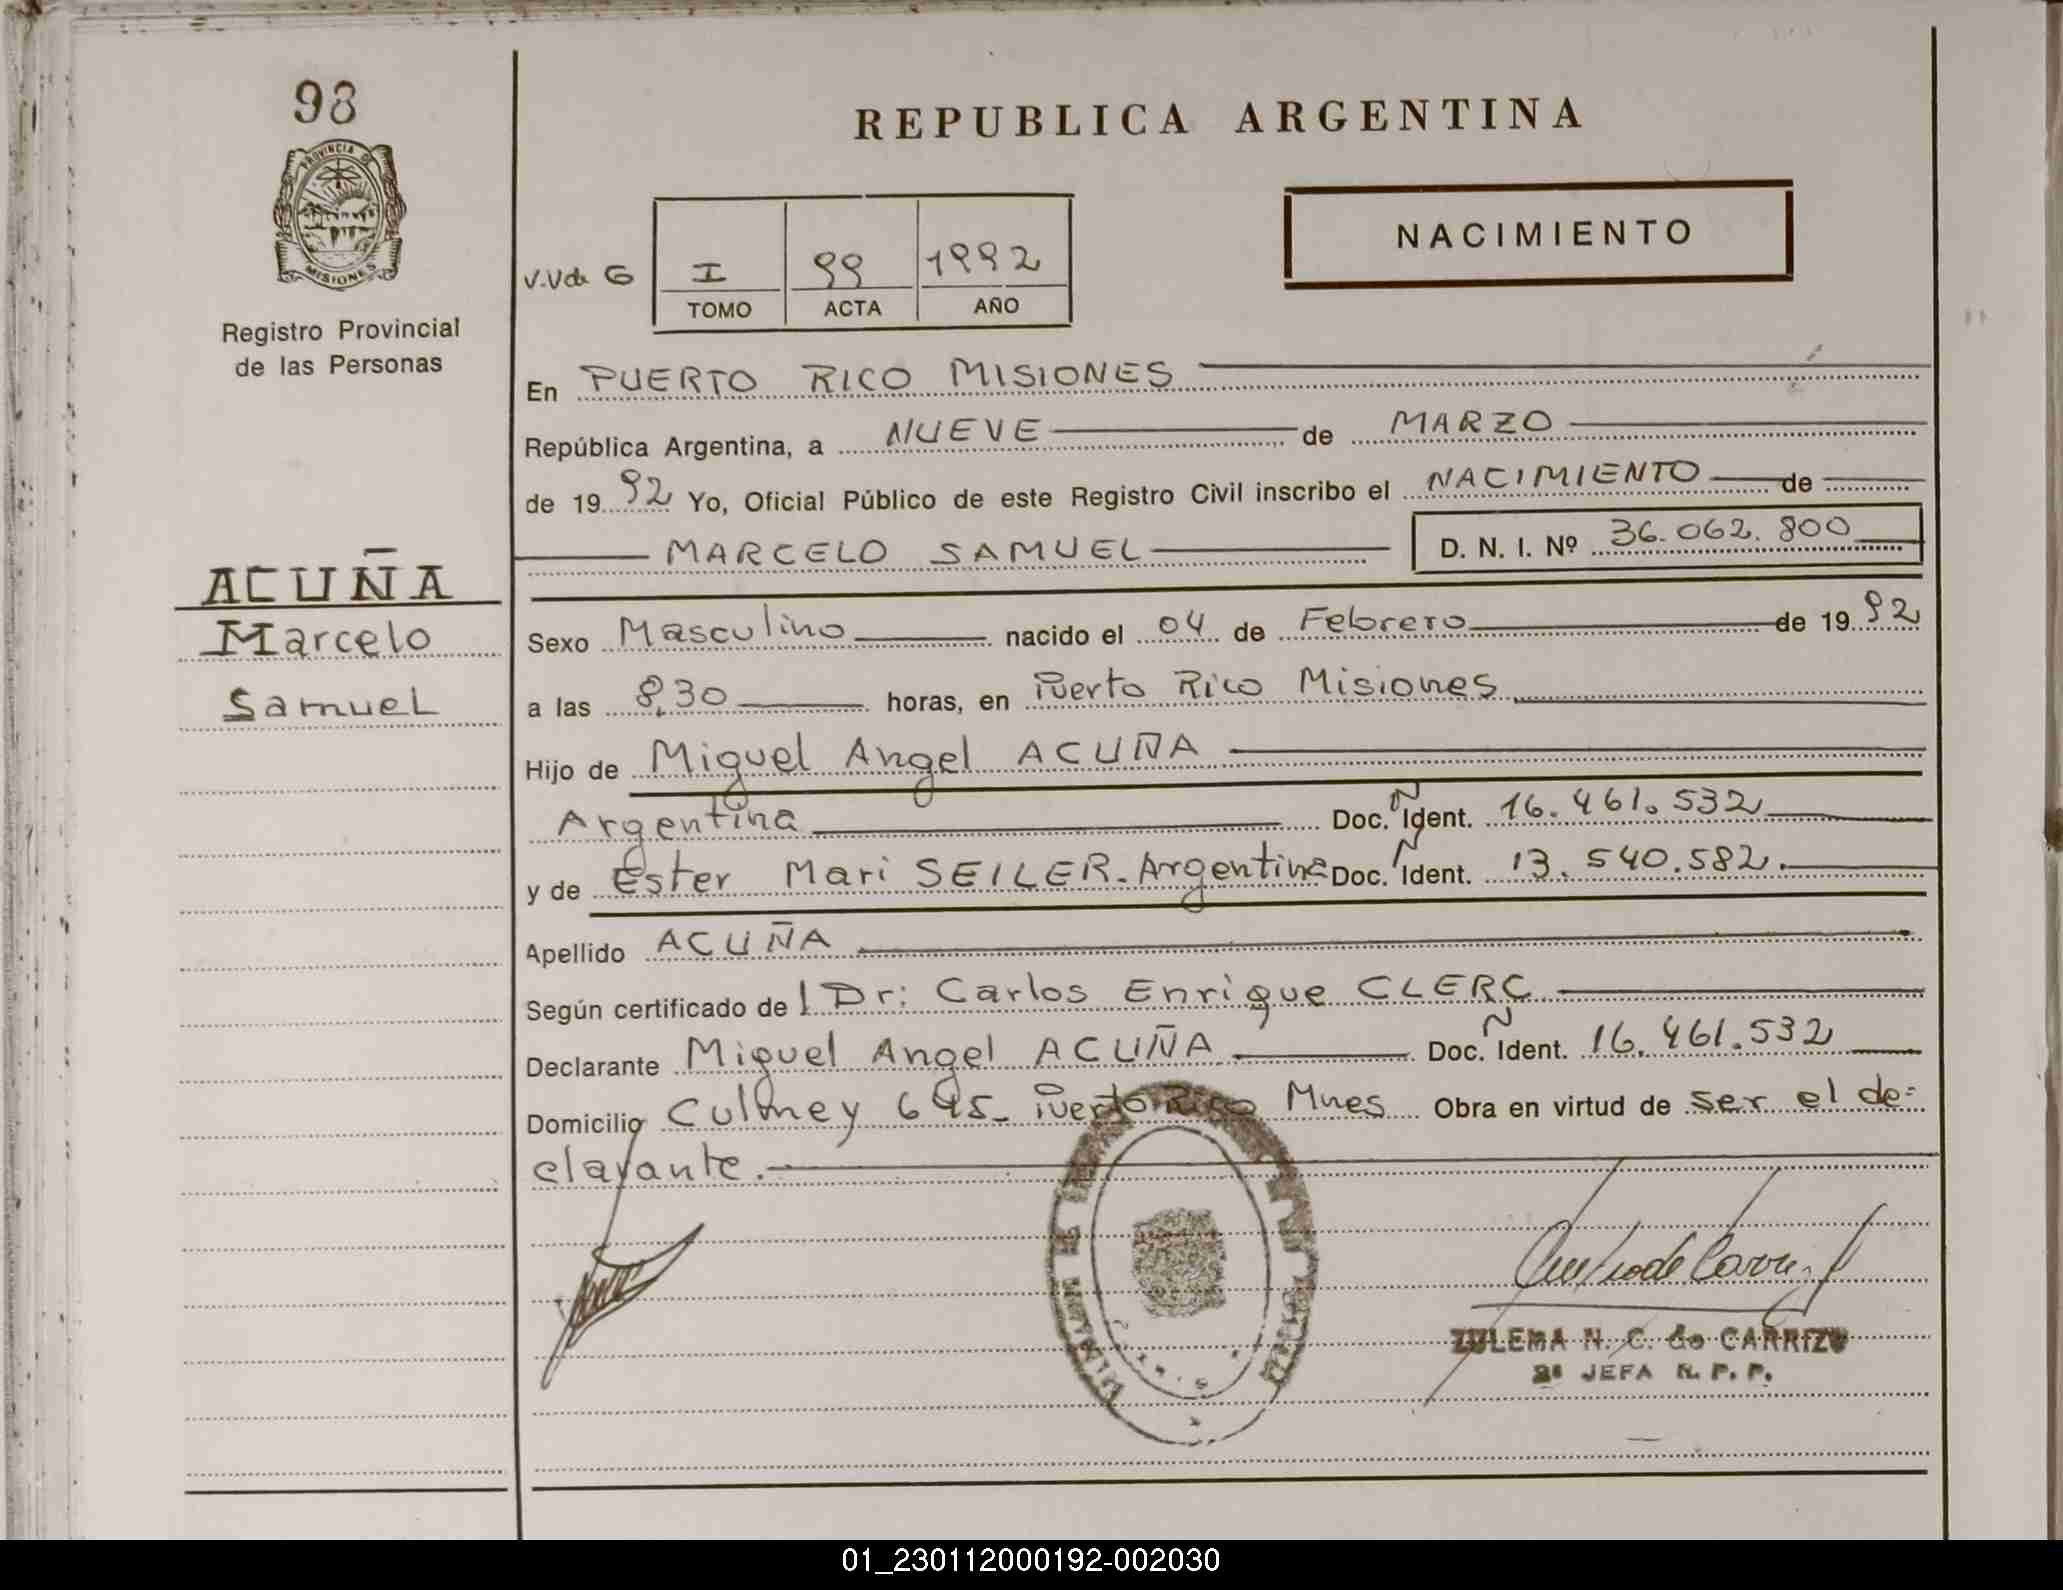 98
PROVINCIA DE
MISIONES
Registro Provincial
de las Personas
ACUÑA
Marcelo
Samuel
REPUBLICA ARGENTINA
NACIMIENTO
I 99 1992
TOMO ACTA AÑO
En PUERTO RICO MISIONES
República Argentina, a NUEVE de MARZO
de 1992 Yo, Oficial Público de este Registro Civil inscribo el NACIMIENTO de
MARCELO SAMUEL D. N. I. Nº 36.062.800
Sexo Masculino nacido el 04 de Febrero de 1992
a las 8,30 horas, en Puerto Rico Misiones
Hijo de Miguel Angel ACUÑA
Argentina Doc. Ident. 16.461.532
y de Ester Mari SEILER-Argentina Doc. Ident. 13.540.582.
Apellido ACUÑA
Según certificado de l Dr: Carlos Enrique CLERC
Declarante Miguel Angel ACUÑA Doc. Ident. 16.461.532
Domicilio Culmey 695- Puerto Rico Mnes Obra en virtud de ser el de=
clarante.
ZULEMA N. C. de CARRIZO
2ª JEFA R. P. P.
01_230112000192-002030